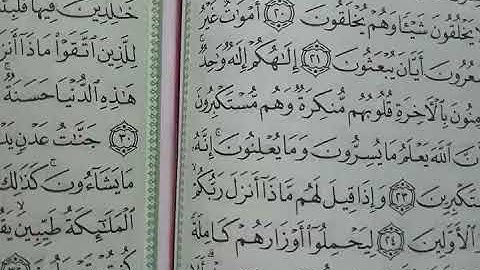 يَخْلُقُونَ شَيْـًٔا وَهُمْ يُخْلَقُونَ ٢٠ أَمْوَٰتٌ غَيْرُ
عُرُونَ أَيَّانَ يُبْعَثُونَ ٢١ إِلَٰهُكُمْ إِلَٰهٌ وَٰحِدٌ
مِنُونَ بِٱلْأَخِرَةِ قُلُوبُهُم مُّنكِرَةٌ وَهُم مُّسْتَكْبِرُونَ
أَنَّ ٱللَّهَ يَعْلَمُ مَا يُسِرُّونَ وَمَا يُعْلِنُونَ إِنَّهُۥ
تَكْبِرِينَ ٢٣ وَإِذَا قِيلَ لَهُم مَّاذَآ أَنزَلَ رَبُّكُمْ
ٱلْأَوَّلِينَ ٢٤ لِيَحْمِلُوٓا۟ أَوْزَارَهُمْ كَامِلَةً
خَٰلِدِينَ فِيهَا فَلَبِئْ
لِلَّذِينَ ٱتَّقَوْا۟ مَاذَآ أَنزَ
هَٰذِهِ ٱلدُّنْيَا حَسَنَةٌ
٣٠ جَنَّٰتُ عَدْنٍ يَدْ
مَا يَشَآءُونَ كَذَٰلِكَ
ٱلْمَلَٰٓئِكَةُ طَيِّبِينَ يَقُ